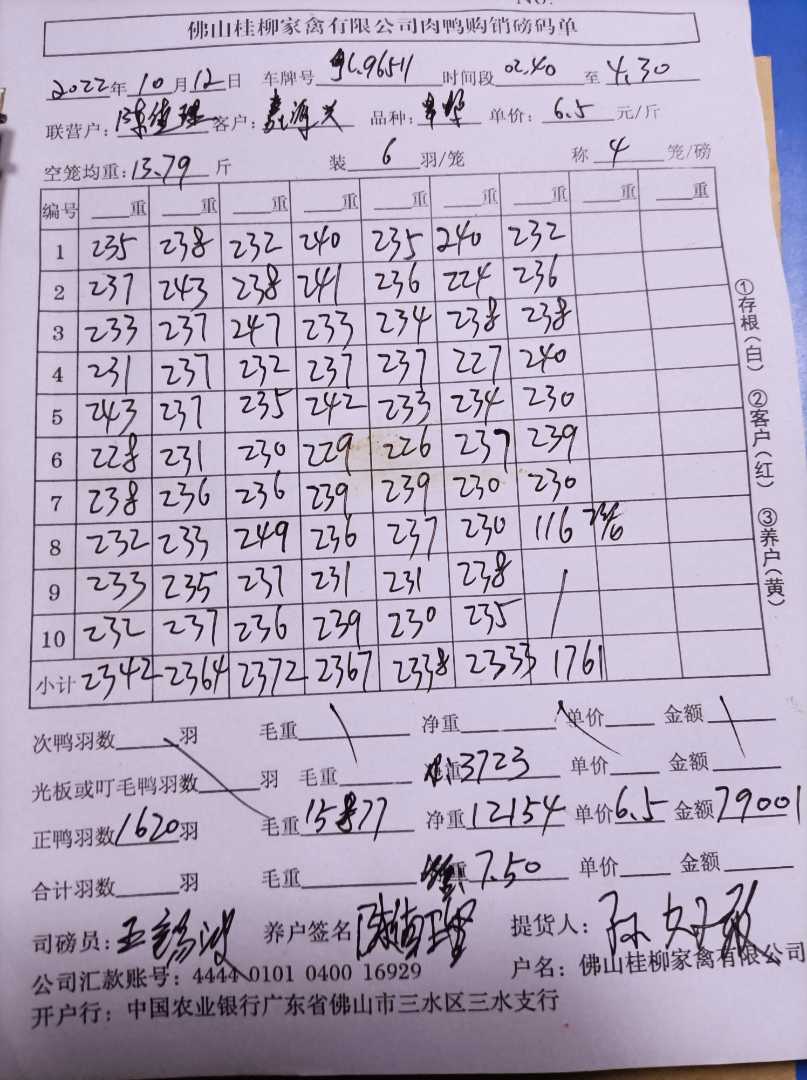 佛山桂柳家禽有限公司肉鸭购销磅码单
2022年10月12日 车牌号 96511 时间段 02.40 至 4.30
联营户: 客户: 品种: 单价: 6.5 元/斤
空笼均重: 13.79 斤 装 6 羽/笼 称 4 笼/磅
编号 重 重 重 重 重 重 重 重 重
1 235 238 232 240 235 240 232
2 237 243 238 241 236 224 236
3 233 237 247 233 234 238 238
4 231 237 232 237 237 227 240
5 243 237 235 242 233 234 230
6 228 231 230 229 226 237 239
7 238 236 236 239 239 230 230
8 232 233 249 236 237 230 116
9 233 235 237 231 231 238 /
10 232 237 236 239 230 235
小计 2342 2364 2372 2367 2338 2333 1761
①存根(白) ②客户(红) ③养户(黄)
次鸭羽数 羽 毛重 净重 单价 金额
光板或叮毛鸭羽数 羽 毛重 3723 单价 金额
正鸭羽数 1620 羽 毛重 15877 净重 12154 单价 6.5 金额 79001
合计羽数 羽 毛重 重 7.50 单价 金额
司磅员: 养户签名 提货人:
公司汇款账号: 4444 0101 0400 16929 户名: 佛山桂柳家禽有限公司
开户行: 中国农业银行广东省佛山市三水区三水支行